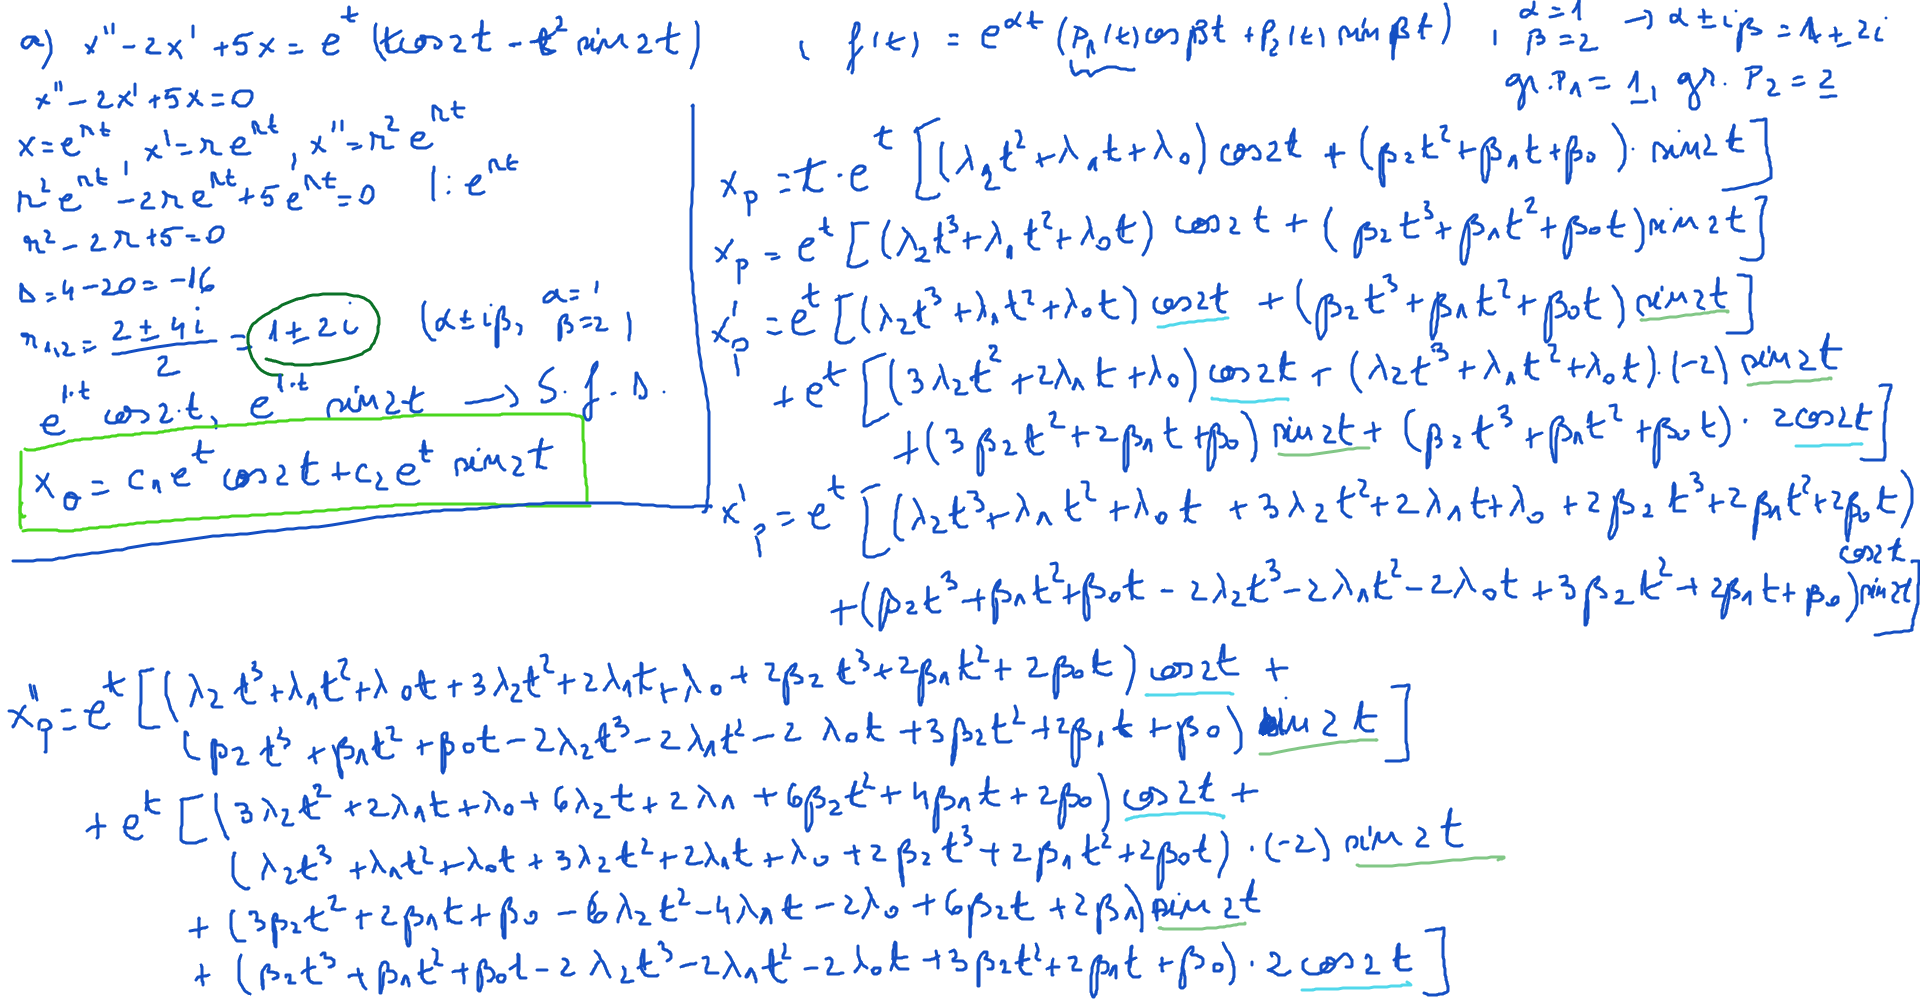 a) x'' - 2x' + 5x = e^t (t cos2t - t² sin2t) , f(t) = e^{αt} (P₁(t) cosβt + P₂(t) sinβt) , α=1 β=2 → α±iβ = 1±2i
gr. P₁ = 1, gr. P₂ = 2
x'' - 2x' + 5x = 0
x = e^{rt}, x' = re^{rt}, x'' = r² e^{rt}
r² e^{rt} - 2re^{rt} + 5e^{rt} = 0 |: e^{rt}
r² - 2r + 5 = 0
Δ = 4 - 20 = -16
r₁,₂ = (2 ± 4i)/2 = 1 ± 2i (α±iβ, α=1 β=2)
e^{1·t} cos2·t, e^{1·t} sin2t → S. f. s.
x₀ = c₁e^t cos2t + c₂e^t sin2t
x_p = t·e^t [(λ₂t² + λ₁t + λ₀) cos2t + (β₂t² + β₁t + β₀)· sin2t]
x_p = e^t [(λ₂t³ + λ₁t² + λ₀t) cos2t + (β₂t³ + β₁t² + β₀t) sin2t]
x'_p = e^t [(λ₂t³ + λ₁t² + λ₀t) cos2t + (β₂t³ + β₁t² + β₀t) sin2t]
+ e^t [(3λ₂t² + 2λ₁t + λ₀) cos2t + (λ₂t³ + λ₁t² + λ₀t)·(-2) sin2t
+ (3β₂t² + 2β₁t + β₀) sin2t + (β₂t³ + β₁t² + β₀t)· 2cos2t]
x'_p = e^t [(λ₂t³ + λ₁t² + λ₀t + 3λ₂t² + 2λ₁t + λ₀ + 2β₂t³ + 2β₁t² + 2β₀t) cos2t
+ (β₂t³ + β₁t² + β₀t - 2λ₂t³ - 2λ₁t² - 2λ₀t + 3β₂t² + 2β₁t + β₀) sin2t]
x''_p = e^t [(λ₂t³ + λ₁t² + λ₀t + 3λ₂t² + 2λ₁t + λ₀ + 2β₂t³ + 2β₁t² + 2β₀t) cos2t +
(β₂t³ + β₁t² + β₀t - 2λ₂t³ - 2λ₁t² - 2λ₀t + 3β₂t² + 2β₁t + β₀) sin2t]
+ e^t [(3λ₂t² + 2λ₁t + λ₀ + 6λ₂t + 2λ₁ + 6β₂t² + 4β₁t + 2β₀) cos2t +
(λ₂t³ + λ₁t² + λ₀t + 3λ₂t² + 2λ₁t + λ₀ + 2β₂t³ + 2β₁t² + 2β₀t)·(-2) sin2t
+ (3β₂t² + 2β₁t + β₀ - 6λ₂t² - 4λ₁t - 2λ₀ + 6β₂t + 2β₁) sin2t
+ (β₂t³ + β₁t² + β₀t - 2λ₂t³ - 2λ₁t² - 2λ₀t + 3β₂t² + 2β₁t + β₀)· 2cos2t]